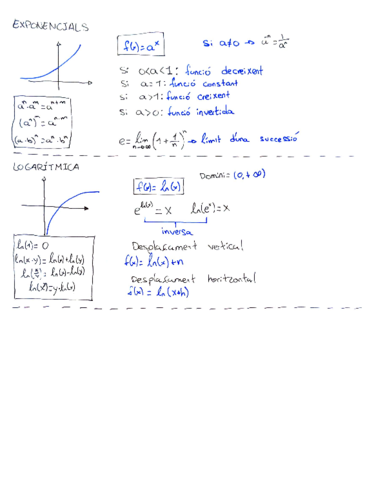 EXPONENCIALS
f(x)=a^x
Si a≠0 → a^-n = 1/a^n
Si 0<a<1: funció decreixent
Si a=1: funció constant
Si a>1: funció creixent
Si a>0: funció invertida
a^n·a^m = a^(n+m)
(a^n)^m = a^(n·m)
(a·b)^n = a^n·b^n
e = lim n→∞ (1+1/n)^n → límit d'una successió
LOGARÍTMICA
f(x)=ln(x)
Domini=(0,+∞)
e^ln(x) = x
ln(e^x)=x
inversa
ln(1)=0
ln(x·y)=ln(x)+ln(y)
ln(x/y)=ln(x)-ln(y)
ln(x^y)=y·ln(x)
Desplaçament vertical
f(x)=ln(x)+n
Desplaçament horitzontal
f(x)=ln(x+n)